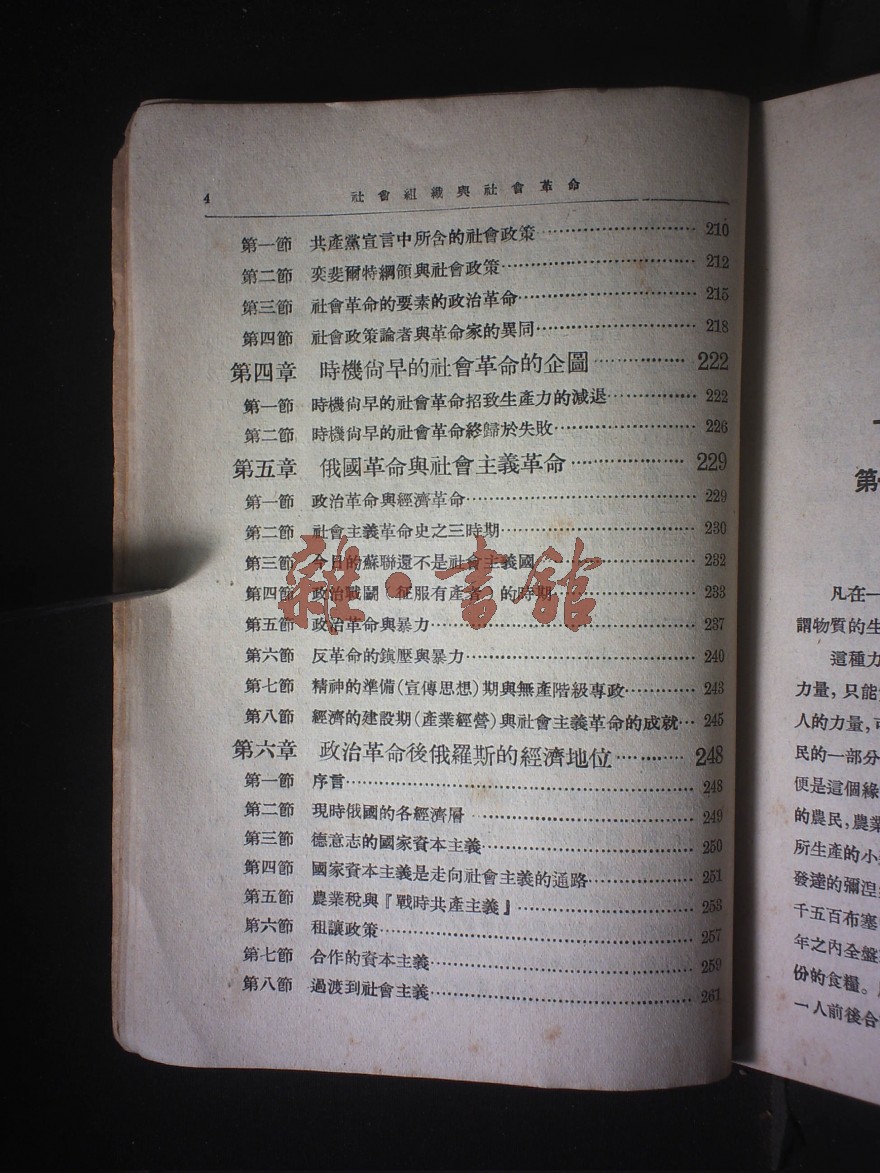 4 社會組織與社會革命
第一節 共產黨宣言中所含的社會政策 210
第二節 奕斐爾特綱領與社會政策 212
第三節 社會革命的要素的政治革命 215
第四節 社會政策論者與革命家的異同 218
第四章 時機尙早的社會革命的企圖 222
第一節 時機尙早的社會革命招致生產力的減退 222
第二節 時機尙早的社會革命終歸於失敗 226
第五章 俄國革命與社會主義革命 229
第一節 政治革命與經濟革命 229
第二節 社會主義革命史之三時期 230
第三節 今日的蘇聯還不是社會主義國 232
第四節 政治戰鬭(征服有產者)的時期 233
第五節 政治革命與暴力 237
第六節 反革命的鎭壓與暴力 240
第七節 精神的準備(宣傳思想)期與無產階級專政 243
第八節 經濟的建設期(產業經營)與社會主義革命的成就 245
第六章 政治革命後俄羅斯的經濟地位 248
第一節 序言 248
第二節 現時俄國的各經濟層 249
第三節 德意志的國家資本主義 250
第四節 國家資本主義是走向社會主義的通路 251
第五節 農業稅與『戰時共產主義』 253
第六節 租讓政策 257
第七節 合作的資本主義 259
第八節 過渡到社會主義 261
雜·書館
第
凡在一
謂物質的生
這種力
力量,只能
人的力量,
民的一部分
便是這個緣
的農民,農業
所生產的小
發達的彌湼
千五百布塞
年之內全盤
份的食糧。
一人前後合